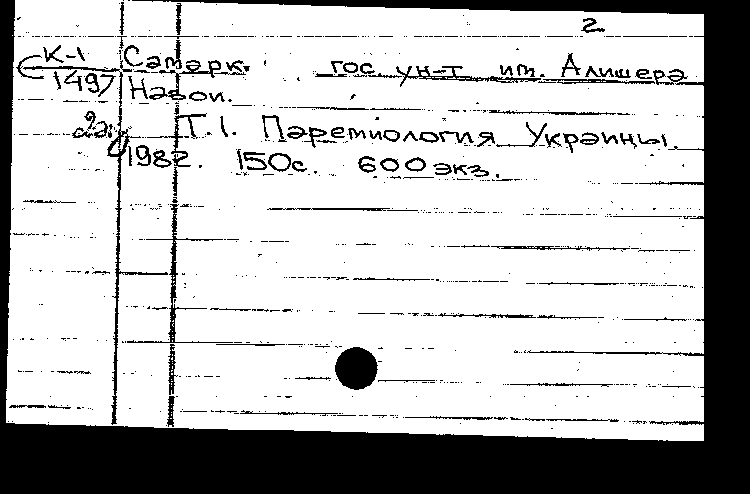 2.
К-1 Самарк. гос. ун-т им. Алишера
1497 Навои.
Т.1. Паремиология Украины.
1982. 150с. 600экз.